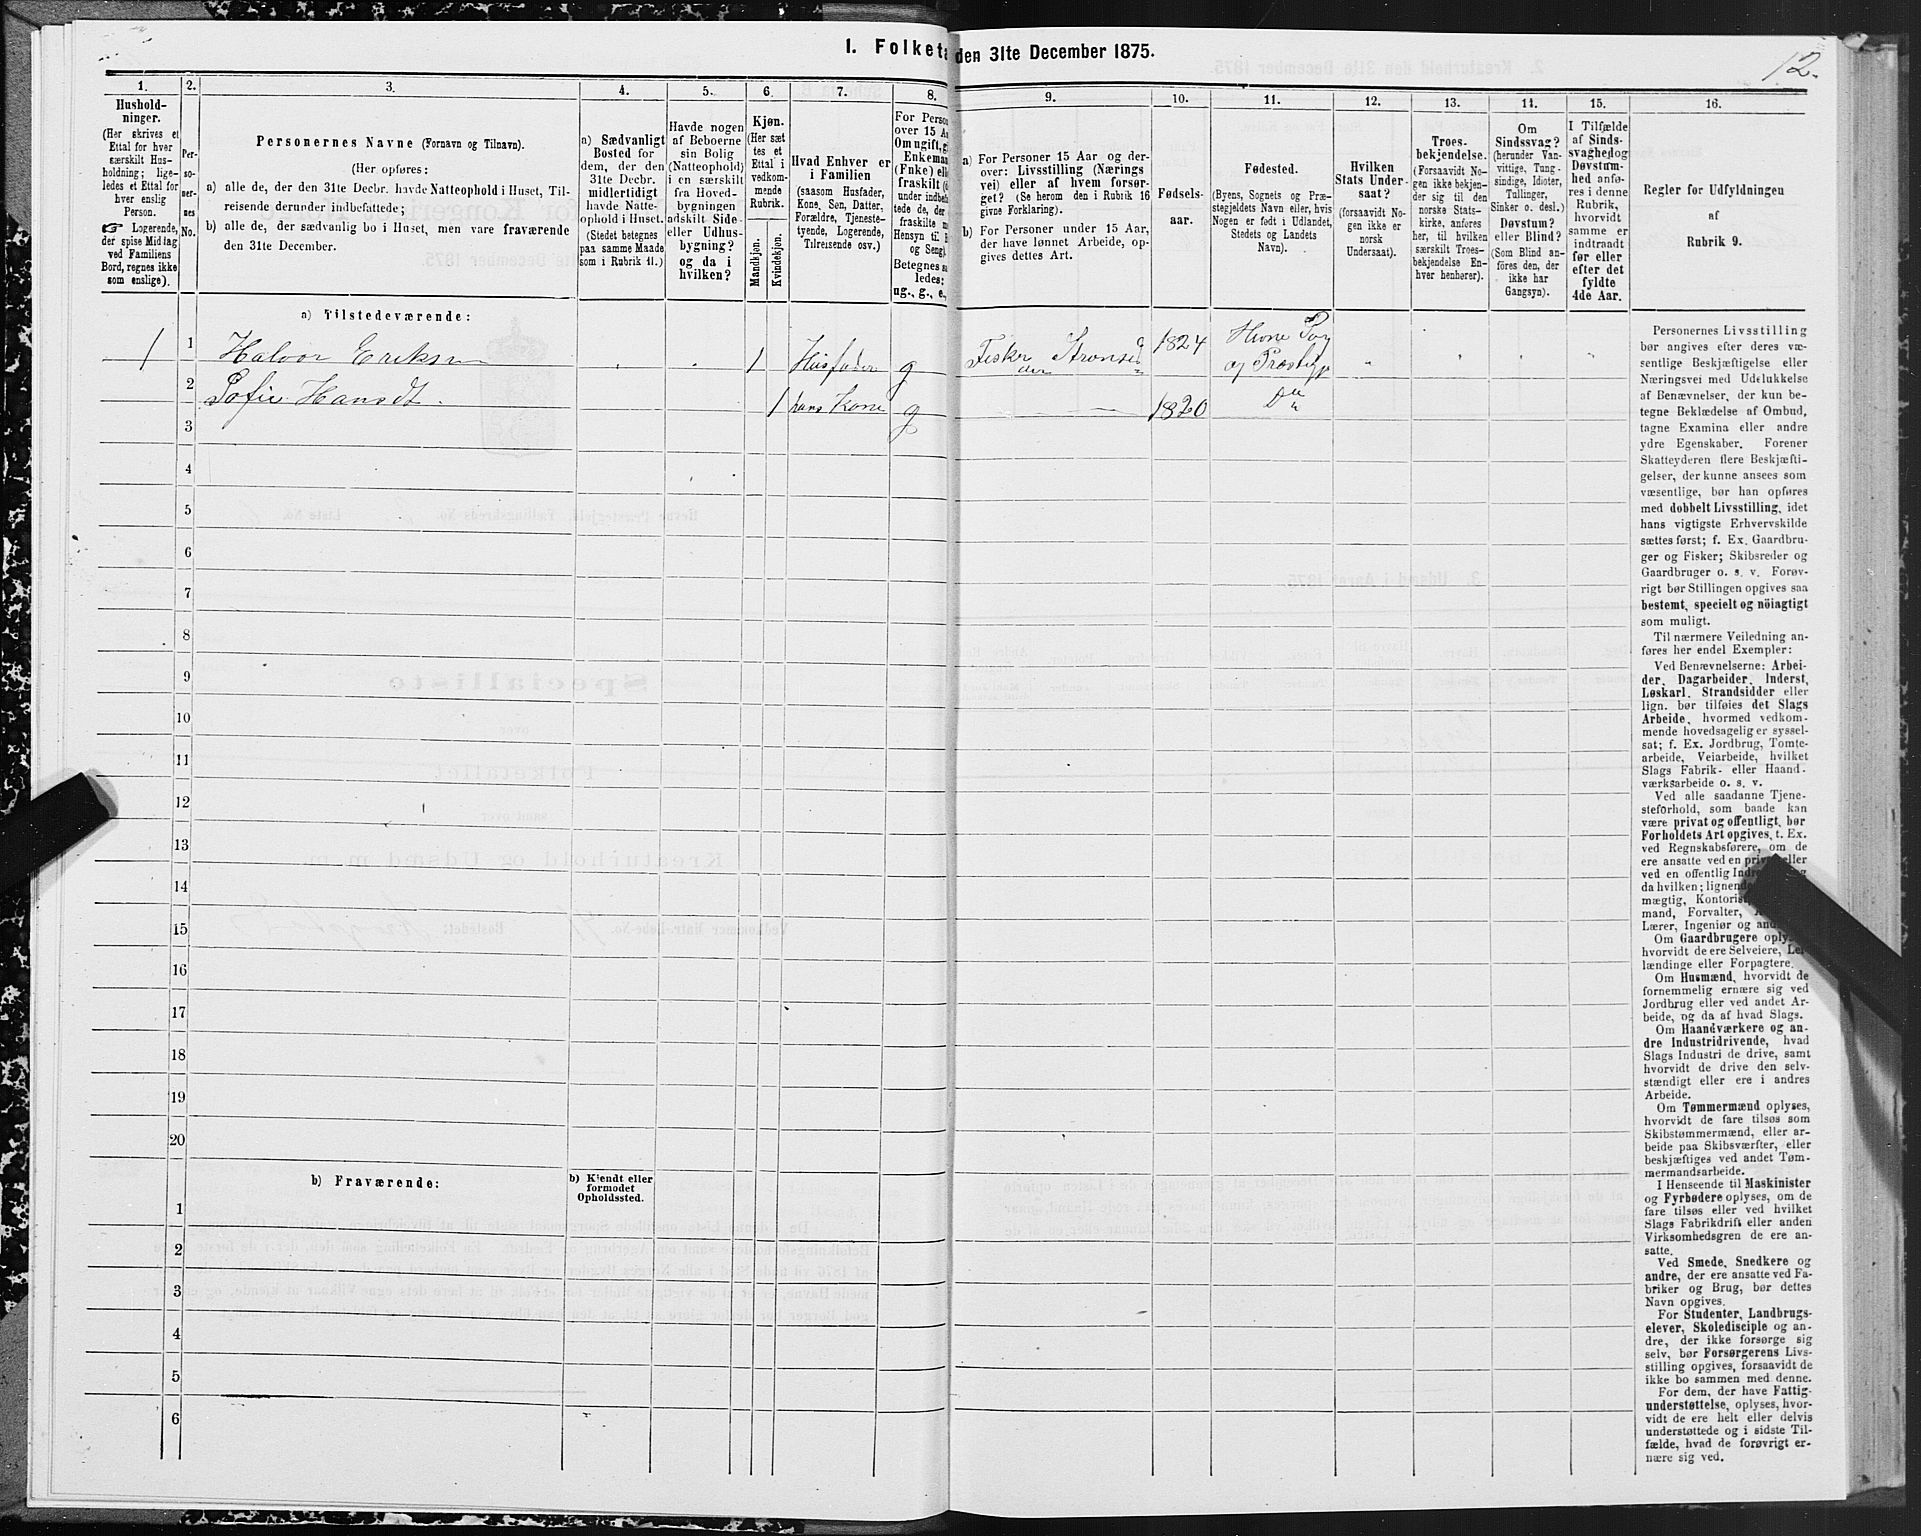 I. Folketa den 31te December 1875.
12.
1. 2. 3. 4. 5. 6. 7. 8. 9. 10. 11. 12. 13. 14. 15. 16.
Hushold-
ninger.
(Her skrives et
Ettal for hver
særskilt Hus-
holdning; lige-
ledes et Ettal for
hver enslig
Person.
☞ Logerende,
der spise Middag
ved Familiens
Bord, regnes ikke
som enslige).
Per-
so-
ner-
nes
No.
Personernes Navne (Fornavn og Tilnavn).
(Her opføres:
a) alle de, der den 31te Decbr. havde Natteophold i Huset, Til-
reisende derunder indbefattede;
b) alle de, der sædvanlig bo i Huset, men vare fraværende
den 31te December.
a) Sædvanligt
Bosted for
dem, der den
31te Decbr.
midlertidigt
havde Natte-
ophold i Huset.
(Stedet betegnes
paa samme Maade
som i Rubrik 11.)
Havde nogen
af Beboerne
sin Bolig
(Natteophold)
i en særskilt
fra Hoved-
bygningen
adskilt Side-
eller Udhus-
bygning?
og da i
hvilken?
Kjøn.
(Her sæt
tes et
Ettal i
vedkom-
mende
Rubrik.
Mandkjøn.
Kvindekjøn.
Hvad Enhver er
i Familien
(saasom Husfader,
Kone, Søn, Datter,
Forældre, Tjeneste-
tyende, Logerende,
Tilreisende osv.)
For Perso
over 15 A
Om ugift, gi
Enkeman
(Enke) elle
fraskilt (
under indbef
tede de, der
fraskilte m
Hensyn til B
og Seng).
Betegnes sa
ledes:
ug., g., e.,
a) For Personer 15 Aar og der-
over: Livsstilling (Nærings
vei) eller af hvem forsør-
get? (Se herom den i Rubrik 16
givne Forklaring).
b) For Personer under 15 Aar,
der have lønnet Arbeide, op-
gives dettes Art.
Fødsels-
aar.
Fødested.
(Byens, Sognets og Præ-
stegjeldets Navn eller, hvis
Nogen er født i Udlandet,
Stedets og Landets
Navn).
Hvilken
Stats Under-
saat?
(forsaavidt No-
gen ikke er
norsk
Undersaat).
Troes-
bekjendelse.
(Forsaavidt No-
gen ikke bekjen-
der sig til den
norske Stats-
kirke, anføres
her, til hvilken
særskilt Troes-
bekjendelse En-
hver henhører).
Om
Sindssvag?
(herunder Van-
vittige, Tung-
sindige, Idioter,
Tullinger,
Sinker o. desl.)
Døvstum?
eller Blind?
(Som Blind an-
föres den, der
ikke har
Gangsyn).
I Tilfælde
af Sinds-
svaghed og
Døvstum-
hed anfø-
res i denne
Rubrik,
hvorvidt
samme er
indtraadt
før eller
efter det
fyldte
4de Aar.
Regler for Udfyldningen
af
Rubrik 9.
a) Tilstedeværende:
1 1 Halvor Eriksen 1 Husfader g Fisker 1824
2 Sofie Hansdt. 1 hans Kone g 1820 Do
3
4
5
6
7
8
9
10
11
12
13
14
15
16
17
18
19
20
b) Fraværende:
b) Kjendt eller
formodet
Opholdssted.
1
2
3
4
5
6
Personernes Livsstilling
bør angives efter deres væ-
sentlige Beskjæftigelse eller
Næringsvei med Udelukkelse
af Benævnelser, der kun be-
tegne Beklædelse af Ombud,
tagne Examina eller andre
ydre Egenskaber. Forener
Skatteyderen flere Beskjæfti-
gelser, der kunne ansees som
væsentlige, bør han opføres
med dobbelt Livsstilling, idet
hans vigtigste Erhvervskilde
sættes først; f. Ex. Gaardbru-
ger og Fisker; Skibsreder og
Gaardbruger o. s. v. Forøv-
rigt bør Stillingen opgives saa
bestemt, specielt og nöiagtigt
som muligt.
Til nærmere Veiledning an-
føres her endel Exempler:
Ved Benævnelserne: Arbei-
der, Dagarbeider, Inderst,
Løskarl, Strandsidder eller
lign. bør tilføies det Slags
Arbeide, hvormed vedkom-
mende hovedsagelig er syssel-
sat; f. Ex. Jordbrug, Tomte-
arbeide, Veiarbeide, hvilket
Slags Fabrik- eller Haand-
værksarbeide o. s. v.
Ved alle saadanne Tjene-
steforhold, som baade kan
være privat og offentligt, bør
Forholdets Art opgives, t. Ex.
ved Regnskabsførere, om de
ere ansatte ved en privat eller
ved en offentlig
da hvilken;
mægtig,
mand, Forvalter,
Lærer, Ingeniør og
Om Gaardbrugere
hvorvidt de ere Selveiere,
lændinge eller Forpagtere.
Om Husmænd, hvorvidt de
fornemmelig ernære sig ved
Jordbrug eller ved andet Ar-
beide, og da af hvad Slags.
Om Haandværkere og an-
dre Industridrivende, hvad
Slags Industri de drive, samt
hvorvidt de drive den selv-
stændigt eller ere i andres
Arbeide.
Om Tømmermænd oplyses,
hvorvidt de fare tilsøs som
Skibstømmermænd, eller ar-
beide paa Skibsværfter, eller
beskjæftiges ved andet Tøm-
mermandsarbeide.
I Henseende til Maskinister
og Fyrbødere oplyses, om de
fare tilsøs eller ved hvilket
Slags Fabrikdrift eller anden
Virksomhedsgren de ere an-
satte.
Ved Smede, Snedkere og
andre, der ere ansatte ved Fa-
briker og Brug, bør dettes
Navn opgives.
For Studenter, Landbrugs-
elever, Skoledisciple og an-
dre, der ikke forsørge sig
selv, bør Forsørgerens Livs-
stilling opgives, forsaavidt de
ikke bo sammen med denne.
For dem, der have Fattig-
understøttelse, oplyses, hvor-
vidt de ere helt eller delvis
understøttede og i sidste Til-
fælde, hvad de forøvrigt er-
nære sig ved.